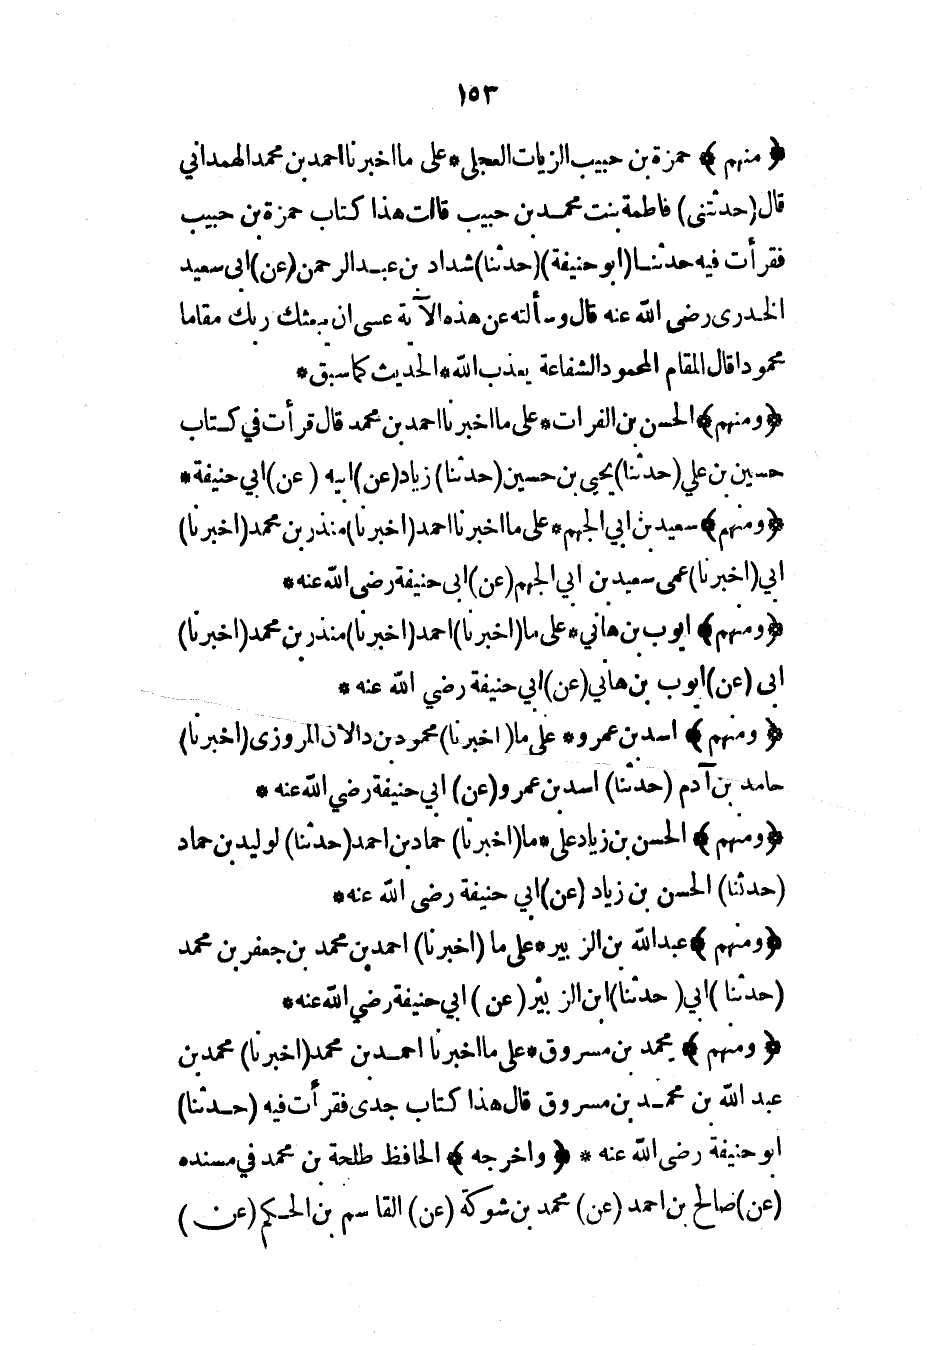 ١٥٣
﴿ منهم ﴾ حمزة بن حبيب الزيات العجلى * على ما اخبرنا احمد بن محمد الهمدانى
قال (حدثتنى) فاطمة بنت محمد بن حبيب قالت هذا كتاب حمزة بن حبيب
فقرأت فيه حدثنا (ابو حنيفة) (حدثنا) شداد بن عبد الرحمن (عن) ابى سعيد
الخدرى رضى الله عنه قال وسألته عن هذه الآية عسى ان يبعثك ربك مقاما
محمودا قال المقام المحمود الشفاعة يعذب الله * الحديث كما سبق *
﴿ ومنهم ﴾ الحسن بن الفرات * على ما اخبرنا احمد بن محمد قال قرأت في كتاب
حسين بن علي (حدثنا) يحيى بن حسين (حدثنا) زياد (عن) ابيه (عن) ابي حنيفة *
﴿ ومنهم ﴾ سعيد بن ابي الجهم * على ما اخبرنا احمد (اخبرنا) منذر بن محمد (اخبرنا)
ابي (اخبرنا) عمى سعيد بن ابي الجهم (عن) ابى حنيفة رضى الله عنه *
﴿ ومنهم ﴾ ايوب بن هاني * على ما (اخبرنا) احمد (اخبرنا) منذر بن محمد (اخبرنا)
ابى (عن) ايوب بن هاني (عن) ابي حنيفة رضي الله عنه *
﴿ ومنهم ﴾ اسد بن عمرو * على ما (اخبرنا) محمود بن دالان المروزى (اخبرنا)
حامد بن آدم (حدثنا) اسد بن عمرو (عن) ابي حنيفة رضي الله عنه *
﴿ ومنهم ﴾ الحسن بن زياد على * ما (اخبرنا) حماد بن احمد (حدثنا) لوليد بن حماد
(حدثنا) الحسن بن زياد (عن) ابي حنيفة رضى الله عنه *
﴿ ومنهم ﴾ عبدالله بن الزبير * على ما (اخبرنا) احمد بن محمد بن جعفر بن محمد
(حدثنا) ابي (حدثنا) ابن الزبير (عن) ابي حنيفة رضي الله عنه *
﴿ ومنهم ﴾ محمد بن مسروق * على ما اخبرنا احمد بن محمد (اخبرنا) محمد بن
عبد الله بن محمد بن مسروق قال هذا كتاب جدى فقرأت فيه (حدثنا)
ابو حنيفة رضى الله عنه * ﴿ واخرجه ﴾ الحافظ طلحة بن محمد في مسنده
(عن) صالح بن احمد (عن) محمد بن شوكة (عن) القاسم بن الحكم (عن)